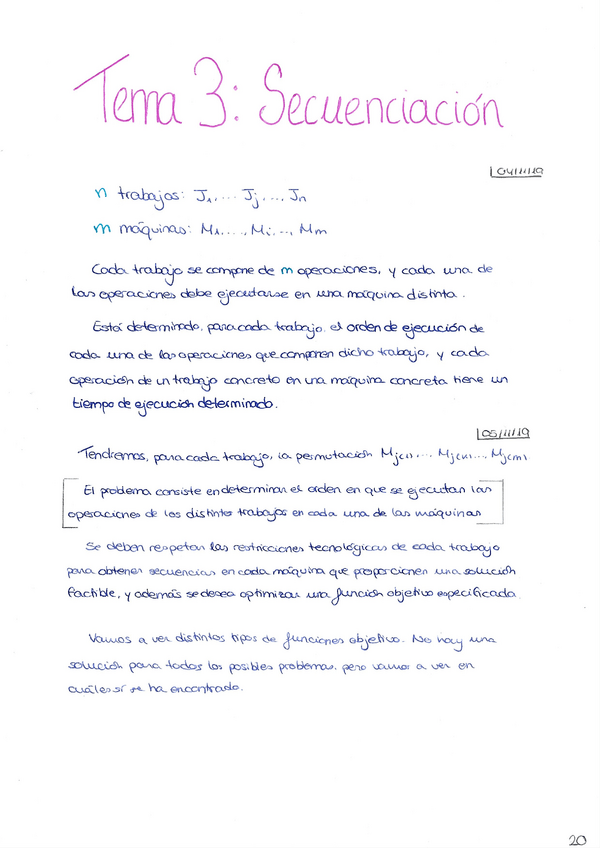 Tema 3: Secuenciación
04/11/19
n trabajos: J₁, ... Jⱼ, ..., Jₙ
m máquinas: M₁, ..., Mᵢ ..., Mₘ
Cada trabajo se compone de m operaciones, y cada una de
las operaciones debe ejecutarse en una máquina distinta.
Está determinado, para cada trabajo, el orden de ejecución de
cada una de las operaciones que componen dicho trabajo, y cada
operación de un trabajo concreto en una máquina concreta tiene un
tiempo de ejecución determinado.
05/11/19
Tendremos, para cada trabajo, la permutación Mj(1) ... Mj(k) ... Mj(m)
El problema consiste en determinar el orden en que se ejecutan las
operaciones de los distintos trabajos en cada una de las máquinas
Se deben respetar las restricciones tecnológicas de cada trabajo
para obtener secuencias en cada máquina que proporcionen una solución
factible, y además se desea optimizar una función objetivo especificada.
Vamos a ver distintos tipos de funciones objetivo. No hay una
solución para todos los posibles problemas, pero vamos a ver en
cuáles sí se ha encontrado.
20